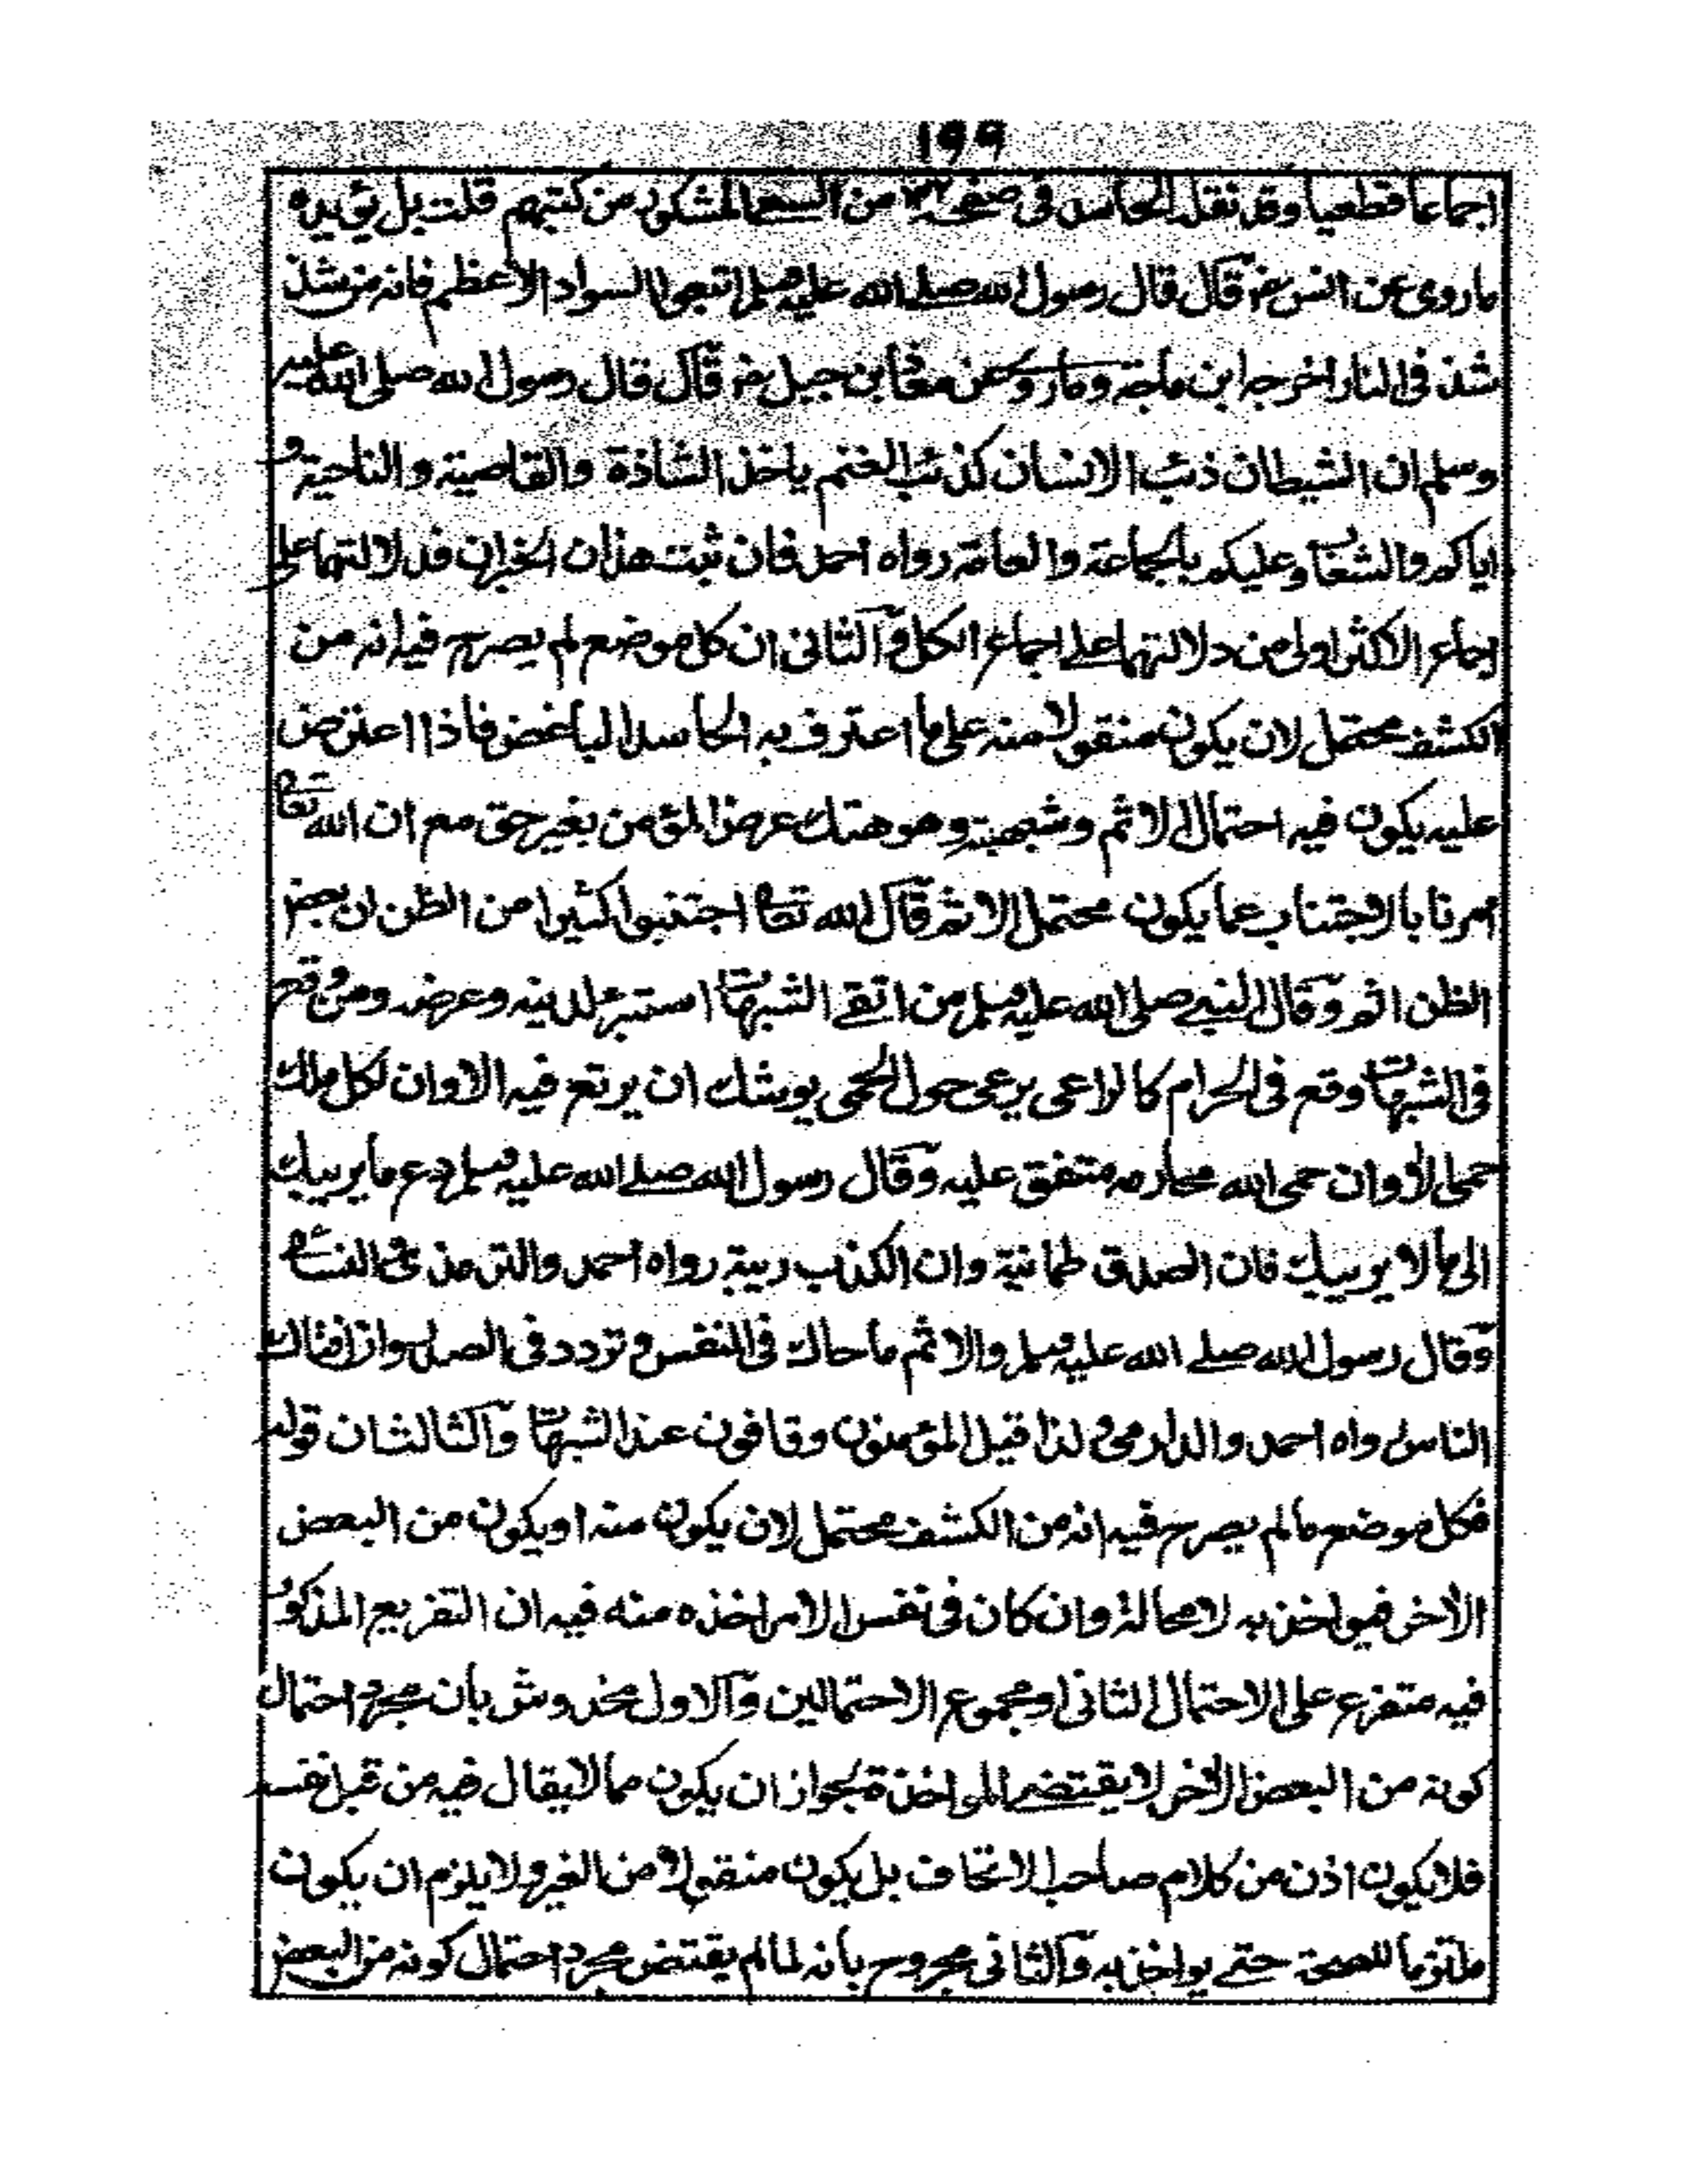 ١٩٩
اجماعا قطعيا وقد نقله الحاسد فى صفحة من السعى المشكور من كتبهم قلت بل يؤيده
ما روى عن انس رض قال قال رسول الله صلے الله عليه وسلم اتبعوا السواد الاعظم فانه من شذ
شذ فى النار اخرجه ابن ماجة وما روى عن معاذ بن جبل رض قال قال رسول الله صلى الله عليه
وسلم ان الشيطان ذئب الانسان كذئب الغنم ياخذ الشاذة والقاصية والناحية و
اياكم والشعاب وعليكم بالجماعة والعامة رواه احمد فان ثبت هذان الخبران فدلالتهما على
اجماع الاكثر اولى من دلالتهما على اجماع الكل والثانى ان كل موضع لم يصرح فيه انه من
الكشف محتمل لان يكون منقولا منه على ما اعترف به الحاسد الباغض فاذا اعترض
عليه يكون فيه احتمال الاثم وشبهته وهو هتك عرض المؤمن بغير حق مع ان الله تعا
امرنا بالاجتناب عما يكون محتمل الاثم قال الله تعا اجتنبوا كثيرا من الظن ان بعض
الظن اثم وقال النبي صلى الله عليه وسلم من اتقے الشبهات استبرء لدينه وعرضه ومن وقع
فى الشبهات وقع فى الحرام كالراعى يرعى حول الحمى يوشك ان يرتع فيه الا وان لكل ملك
حمى الا وان حمى الله محارمه متفق عليه وقال رسول الله صلے الله عليه وسلم دع ما يريبك
الى ما لا يريبك فان الصدق طمانية وان الكذب ريبة رواه احمد والترمذى والنسائ
وقال رسول الله صلے الله عليه وسلم والاثم ما حاك فى النفس و تردد فى الصدر وان افتاك
الناس رواه احمد والدارمى و لذا قيل المؤمنون وقافون عند الشبهات والثالث ان قوله
فكل موضع ما لم يصرح فيه انه من الكشف محتمل لان يكون منه او يكون من البعض
الاخر فيواخذ به لا محالة وان كان فى نفس الامر اخذه منه فيه ان التفريع المذكور
فيه متفرع على الاحتمال الثانى او مجموع الاحتمالين والاول مخدوش بأن مجرد احتمال
كونه من البعض الاخر لا يقتضے المواخذة لجواز ان يكون مما لا يقال فيه من قبل نفسه
فلا يكون اذن من كلام صاحب الاتحاف بل يكون منقولا من الغير ولا يلزم ان يكون
ملتزما للصحة حتے يواخذ به والثانى مجروح بأنه لما لم يقتض مجرد احتمال كونه من البعض